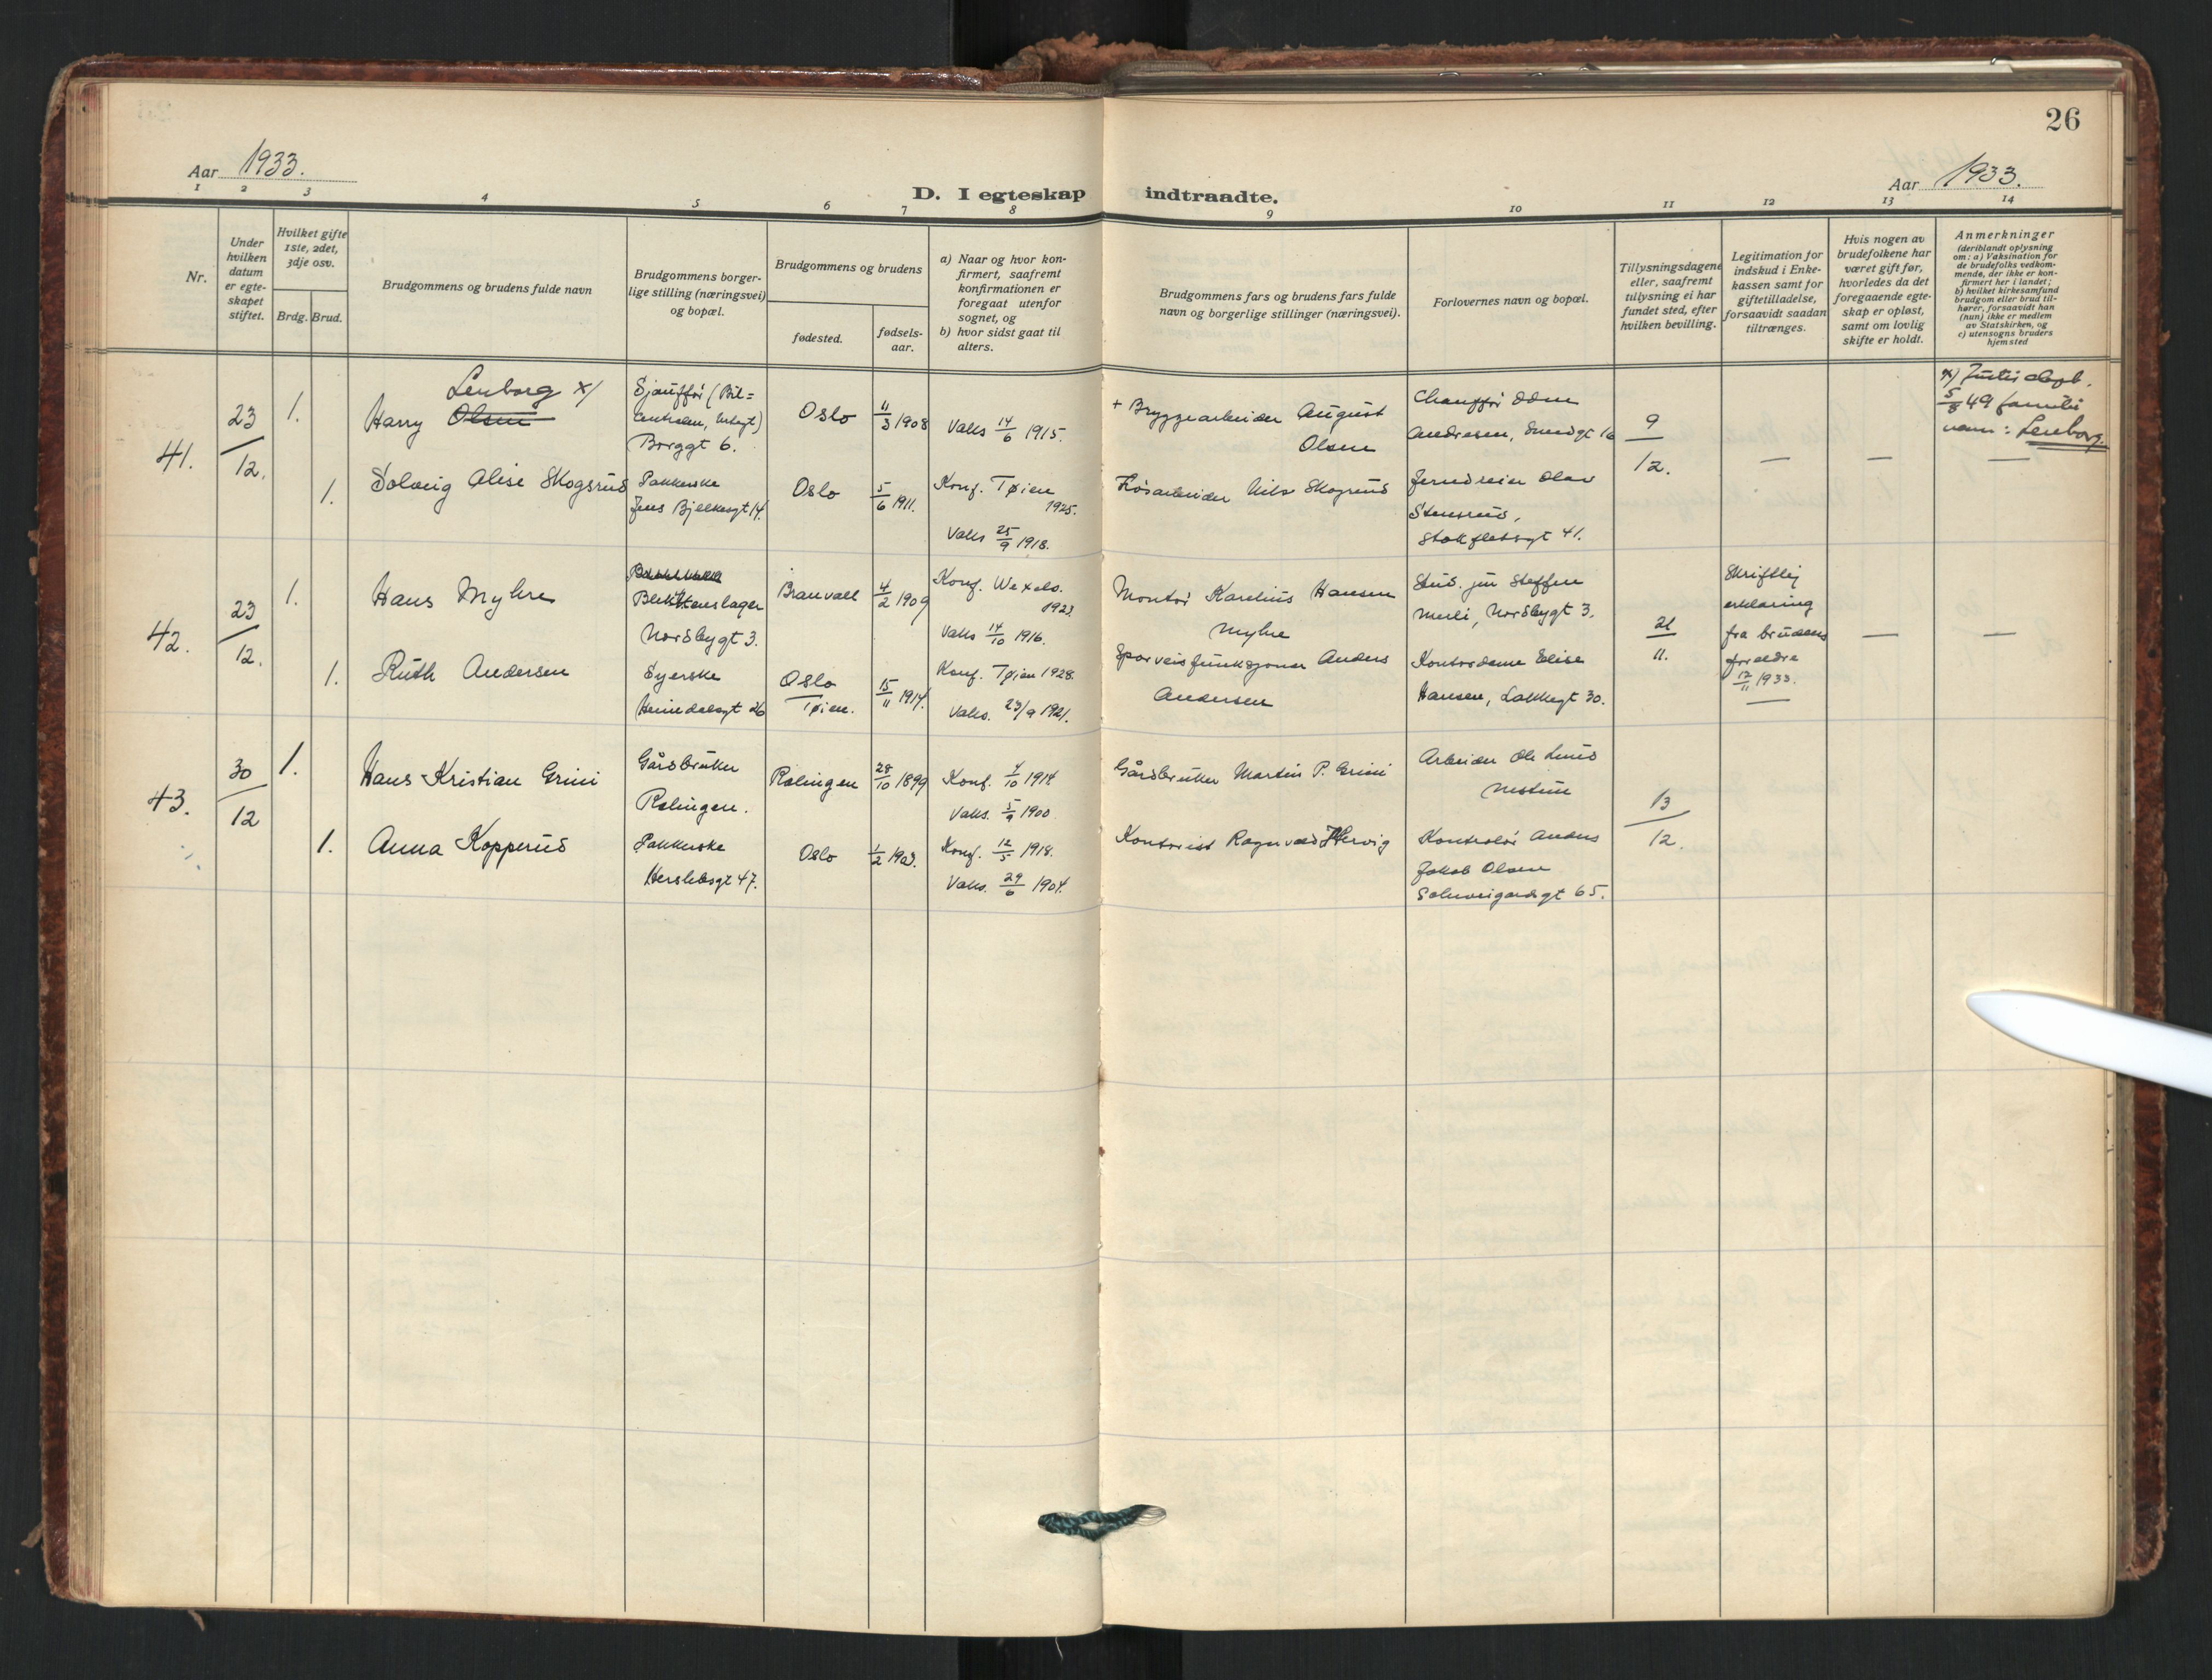 26
Aar 1933.
Aar 1933.
D. I egteskap indtraadte.
1 2 3 4 5 6 7 8 9 10 11 12 13 14
Nr.
Under
hvilken
datum
er egte-
skapet
stiftet.
Hvilket gifte
1ste, 2det,
3dje osv.
Brdg. Brud.
Brudgommens og brudens fulde navn
Brudgommens borger-
lige stilling (næringsvei)
og bopæl.
Brudgommens og brudens
fødested.
fødsels-
aar.
a) Naar og hvor kon-
firmert, saafremt
konfirmationen er
foregaat utenfor
sognet, og
b) hvor sidst gaat til
alters.
Brudgommens fars og brudens fars fulde
navn og borgerlige stillinger (næringsvei).
Forlovernes navn og bopæl.
Tillysningsdagene
eller, saafremt
tillysning ei har
fundet sted, efter
hvilken bevilling.
Legitimation for
indskud i Enke-
kassen samt for
giftetilladelse,
forsaavidt saadan
tiltrænges.
Hvis nogen av
brudefolkene har
været gift før,
hvorledes da det
foregaaende egte-
skap er opløst,
samt om lovlig
skifte er holdt.
Anmerkninger
(deriblandt oplysning
om: a) Vaksination for
de brudefolks vedkom-
mende, der ikke er kon-
firmert her i landet;
b) hvilket kirkesamfund
brudgom eller brud til-
hører, forsaavidt han
(hun) ikke er medlem
av Statskirken, og
c) utensogns bruders
hjemsted
41.
23/12.
1.
Lenborg x/
Harry Olsen
Sjauffør (Bil=
Borggt 6.
Oslo
11/3 1908
Vaks 14/6 1915.
+ Bryggearbeider August
Olsen
Chauffør Odin
Andresen, 16
9/12.
x) Justisdept.
5/8 49 familie
navn: Lenborg.
1.
Solveig Alise Skogsrud
Pakkerske
Jens Bjelkesgt 14.
Oslo
5/6 1911.
Konf. Tøien
1925.
Vaks 25/9 1918.
Løsarbeider Nils Skogsrud
Jerndreier Olav
Stensrud,
Stokfletsgt 41.
42.
23/12.
1.
Hans Myhre
Blikkenslager
Nordbygt 3.
Branvall
4/2 1909
Konf. Wexels.
1923.
Vaks 14/10 1916.
Montør Karelius Hansen
Myhre
Stud. jur Steffen
Nordbygt 3.
21/11.
Skriftlig
erklæring
fra brudens
forældre
17/11 1933.
1.
Ruth Andersen
Syerske
Heimdalsgt 26
Oslo
Tøien.
15/11 1914.
Konf. Tøien 1928
Vaks. 23/9 1921.
Sporveisfunksjonær Anders
Andersen
Kontordame Elise
Hansen, Lakkegt 30.
43.
30/12
1.
Hans Kristian Grini
Gårdbruker
Rælingen.
Rælingen
28/10 1899
Konf. 4/10 1914
Vaks. 5/9 1900
Gårdbruker Martin P. Grini
Arbeider Ole Linus
13/12.
1.
Anna Kopperud
Pakkerske
Herslebsgt 47.
Oslo
1/2 1903.
Konf. 12/5 1918.
Vaks. 29/6 1904.
Kontorist Ragnvald Hervig
Kontrolør Anders
Jakob Olsen
Schweigaardsgt 65.